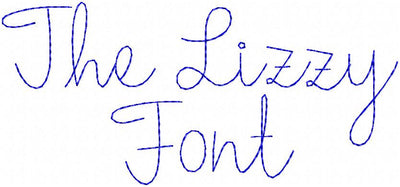 The Lizzy
Font